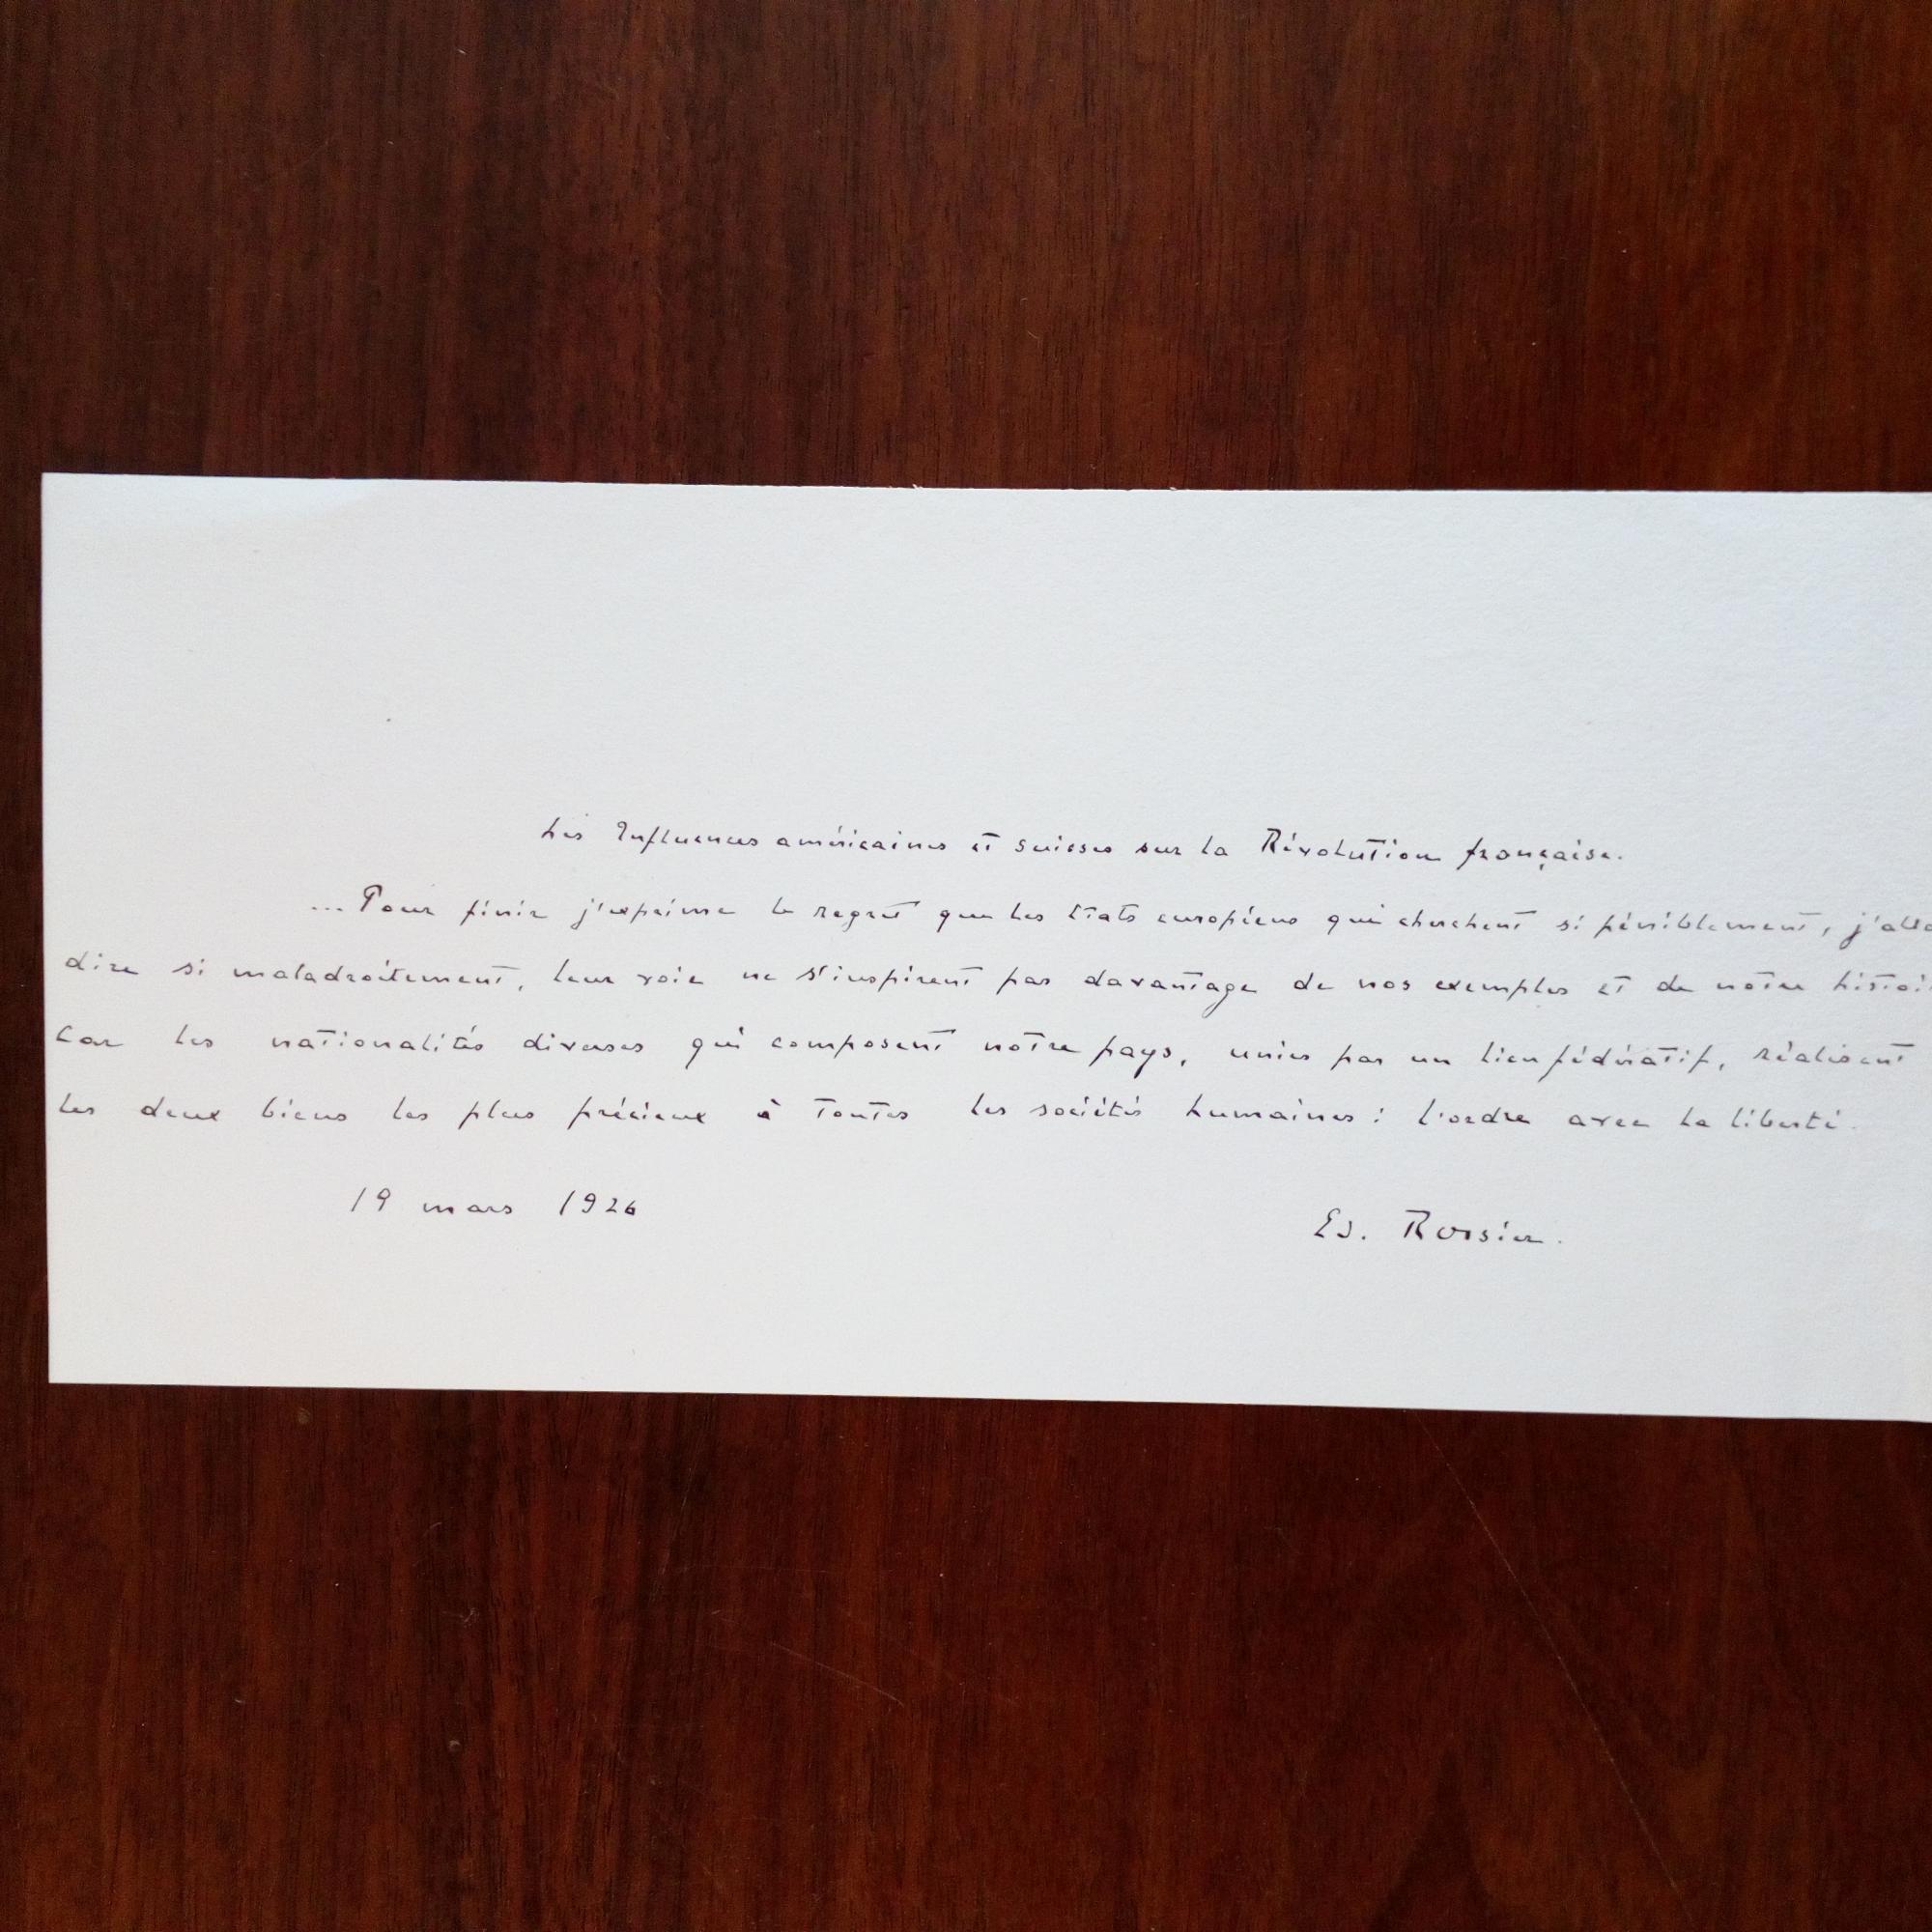 Les Influences américaines et suisses sur la Révolution française.
... Pour finir j'exprime le regret que les Etats européens qui cherchent si péniblement, j'alla
dire si maladroitement, leur voie ne s'inspirent pas davantage de nos exemples et de notre histoi
Car les nationalités diverses qui composent notre pays, unies par un lien fédératif, réalisent
les deux biens les plus précieux à toutes les sociétés humaines : l'ordre avec la liberté.
19 mars 1926
Ed. Rossier.